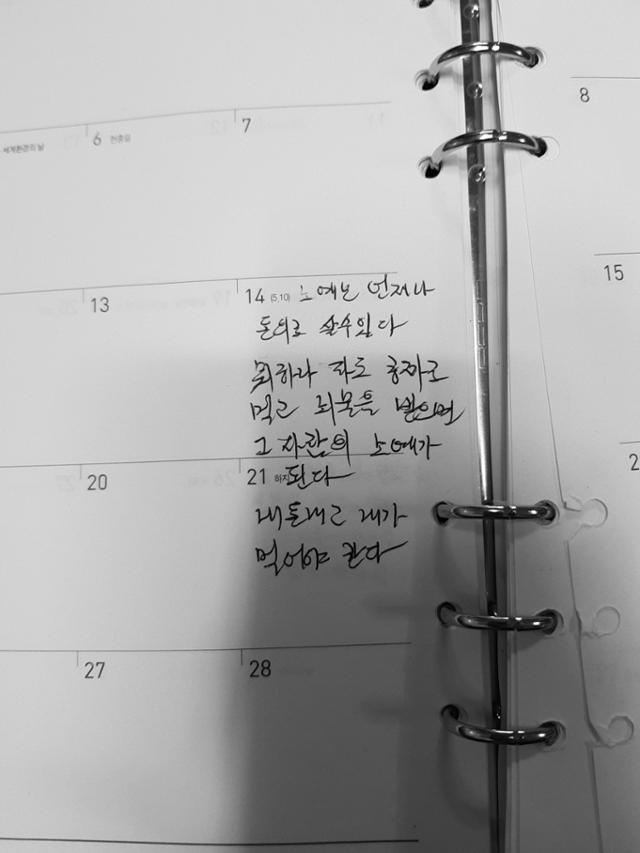 세계환경의 날
6 현충일
7
8
13
14 (5.10) 노예는 언제나
돈의로 살수있다
15
하나 자도 공짜로
먹고 뇌물을 받으면
그 사람의 노예가
20
21 하지 된다
2
내돈내고 내가
먹어야 한다
27
28